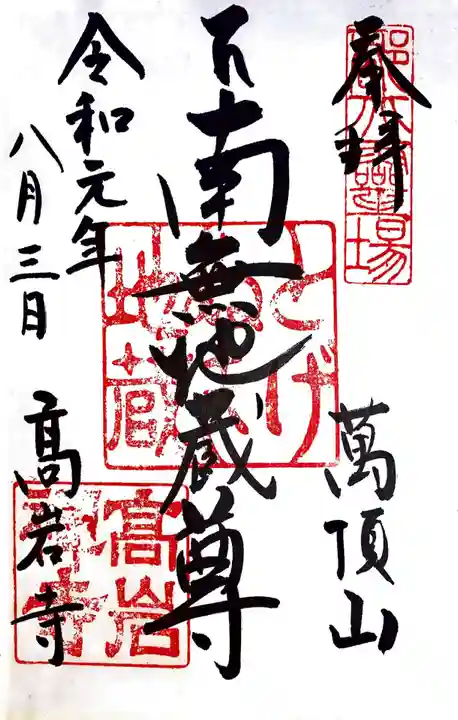 奉拝
萬頂山
南無地蔵尊
令和元年
八月三日
高岩寺
とげぬき
地蔵
高岩
寺